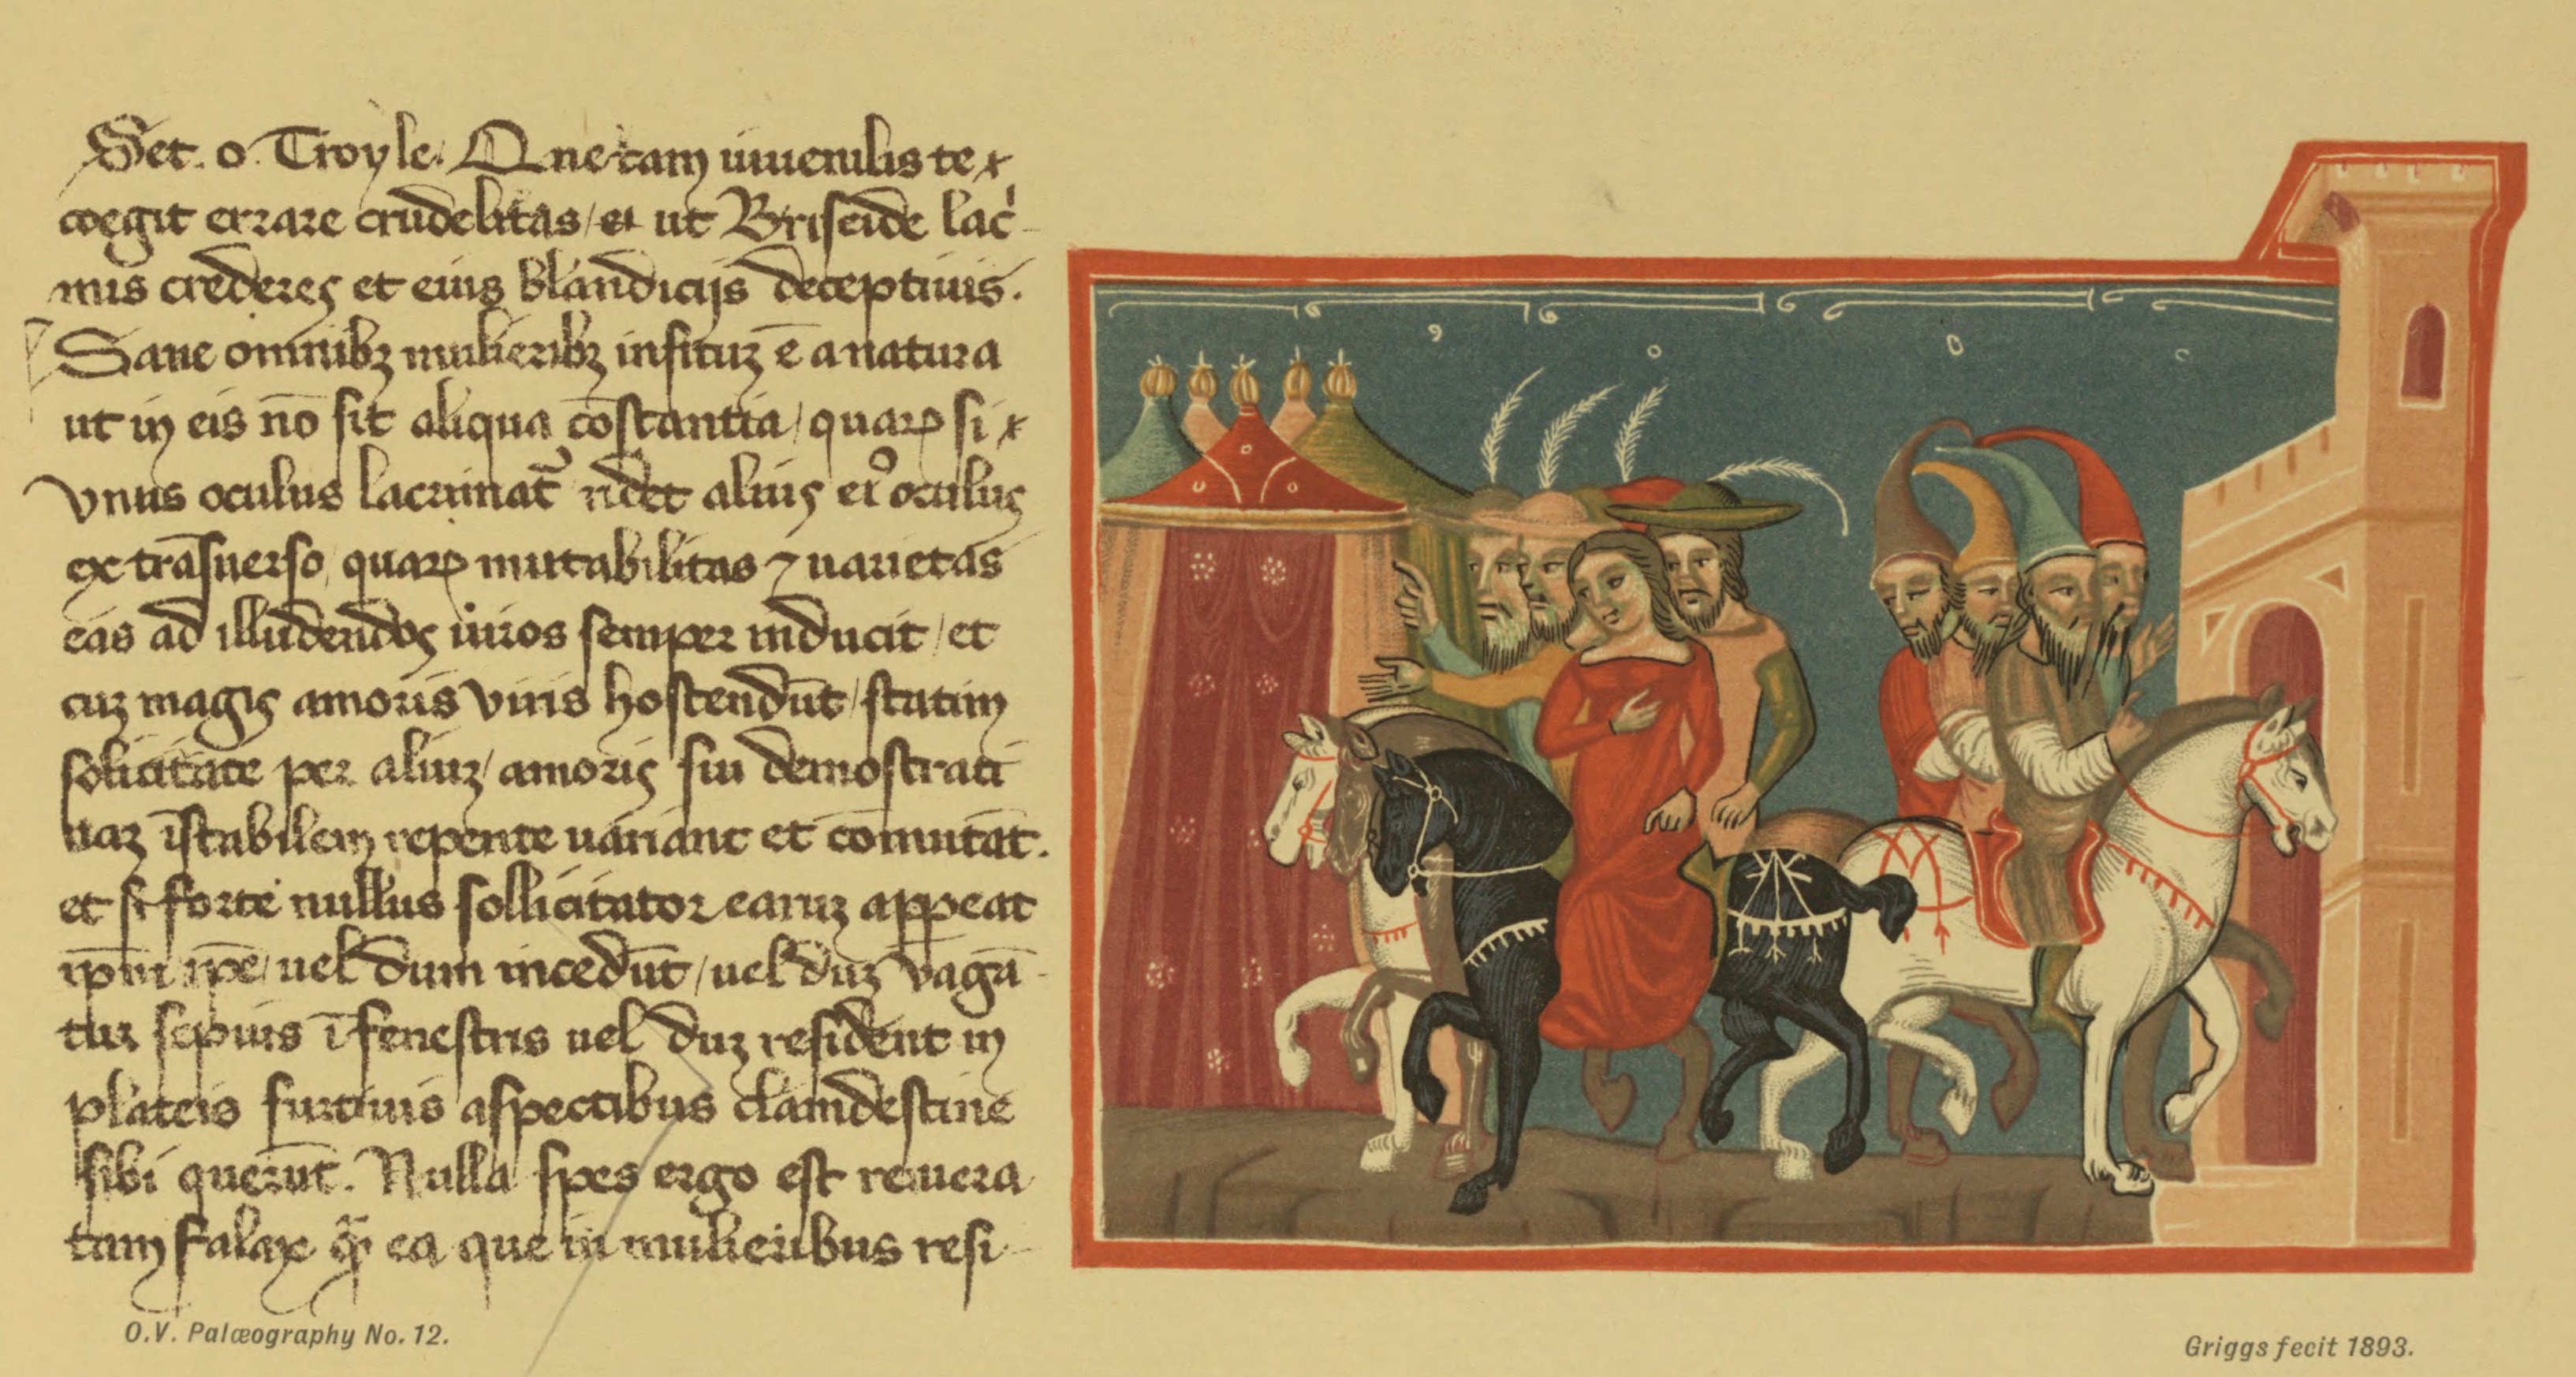 Set. o. Troyle. Que tam iuuenilis te
coegit errare crudelitas / et ut Briseide lac̾-
mis crederes et eius blandicijs deceptiuis.
Sane omnibꝫ mulieribꝫ insituꝫ ē a natura
ut in eis nō sit aliqua cōstantia / quaꝝ si
vnus oculus lacrimat᷑ ridet alius eiꝰ oculus
ex trāsuerso, quaꝝ mutabilitas ⁊ uarietas
eas ad illudendos uiros semper inducit / et
cuꝫ magis amoris viris hostendūt / statim
solicitate per aliuꝫ / amoris sui demostrati
uaꝫ īstabilem repente uariant et comutāt.
et si forte nullus sollicitator earuꝫ appeat
ip̄m ip̄e / uel dum incedūt / uel duꝫ vagā-
tur sepius ī fenestris uel duꝫ resident in
plateis furtiuis aspectibus clamdestine
sibi querūt. Nulla spes ergo est reuera
tam falax q̄ ea que in mulieribus resi-
O.V. Palæography No. 12.
Griggs fecit 1893.